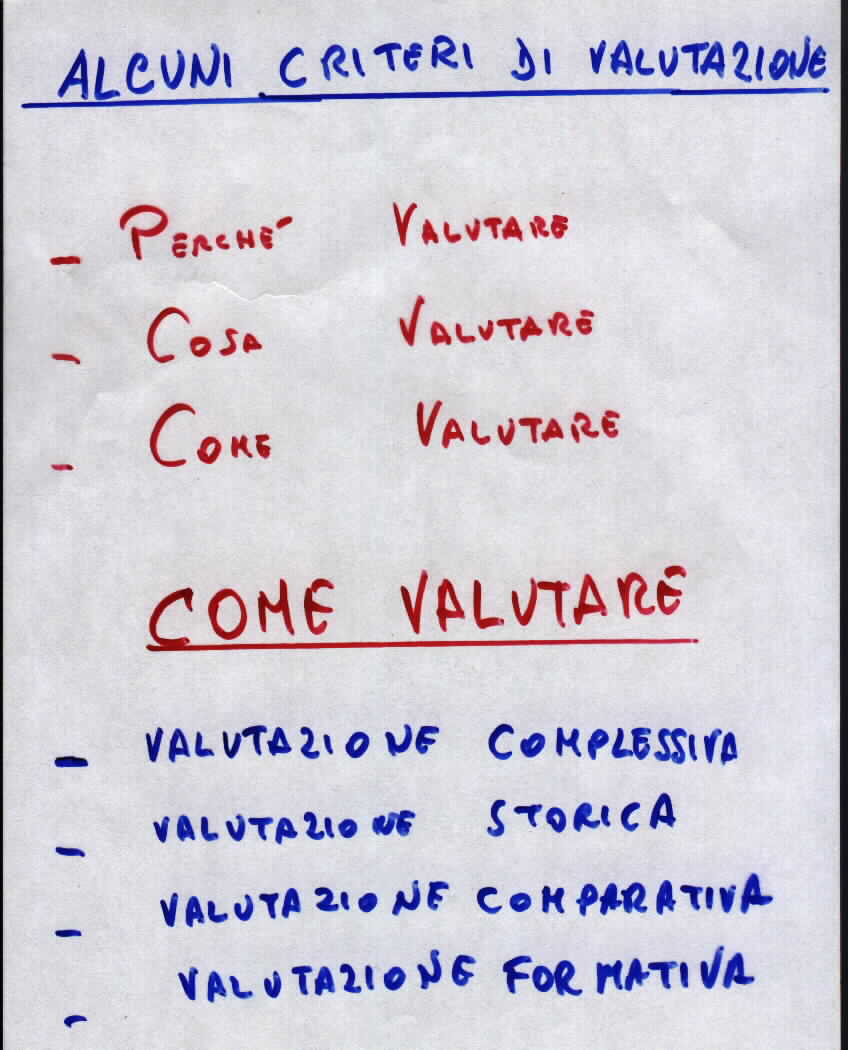 ALCUNI CRITERI DI VALUTAZIONE
- PERCHÉ VALUTARE
- COSA VALUTARE
- COME VALUTARE
COME VALUTARE
- VALUTAZIONE COMPLESSIVA
- VALUTAZIONE STORICA
- VALUTAZIONE COMPARATIVA
- VALUTAZIONE FORMATIVA